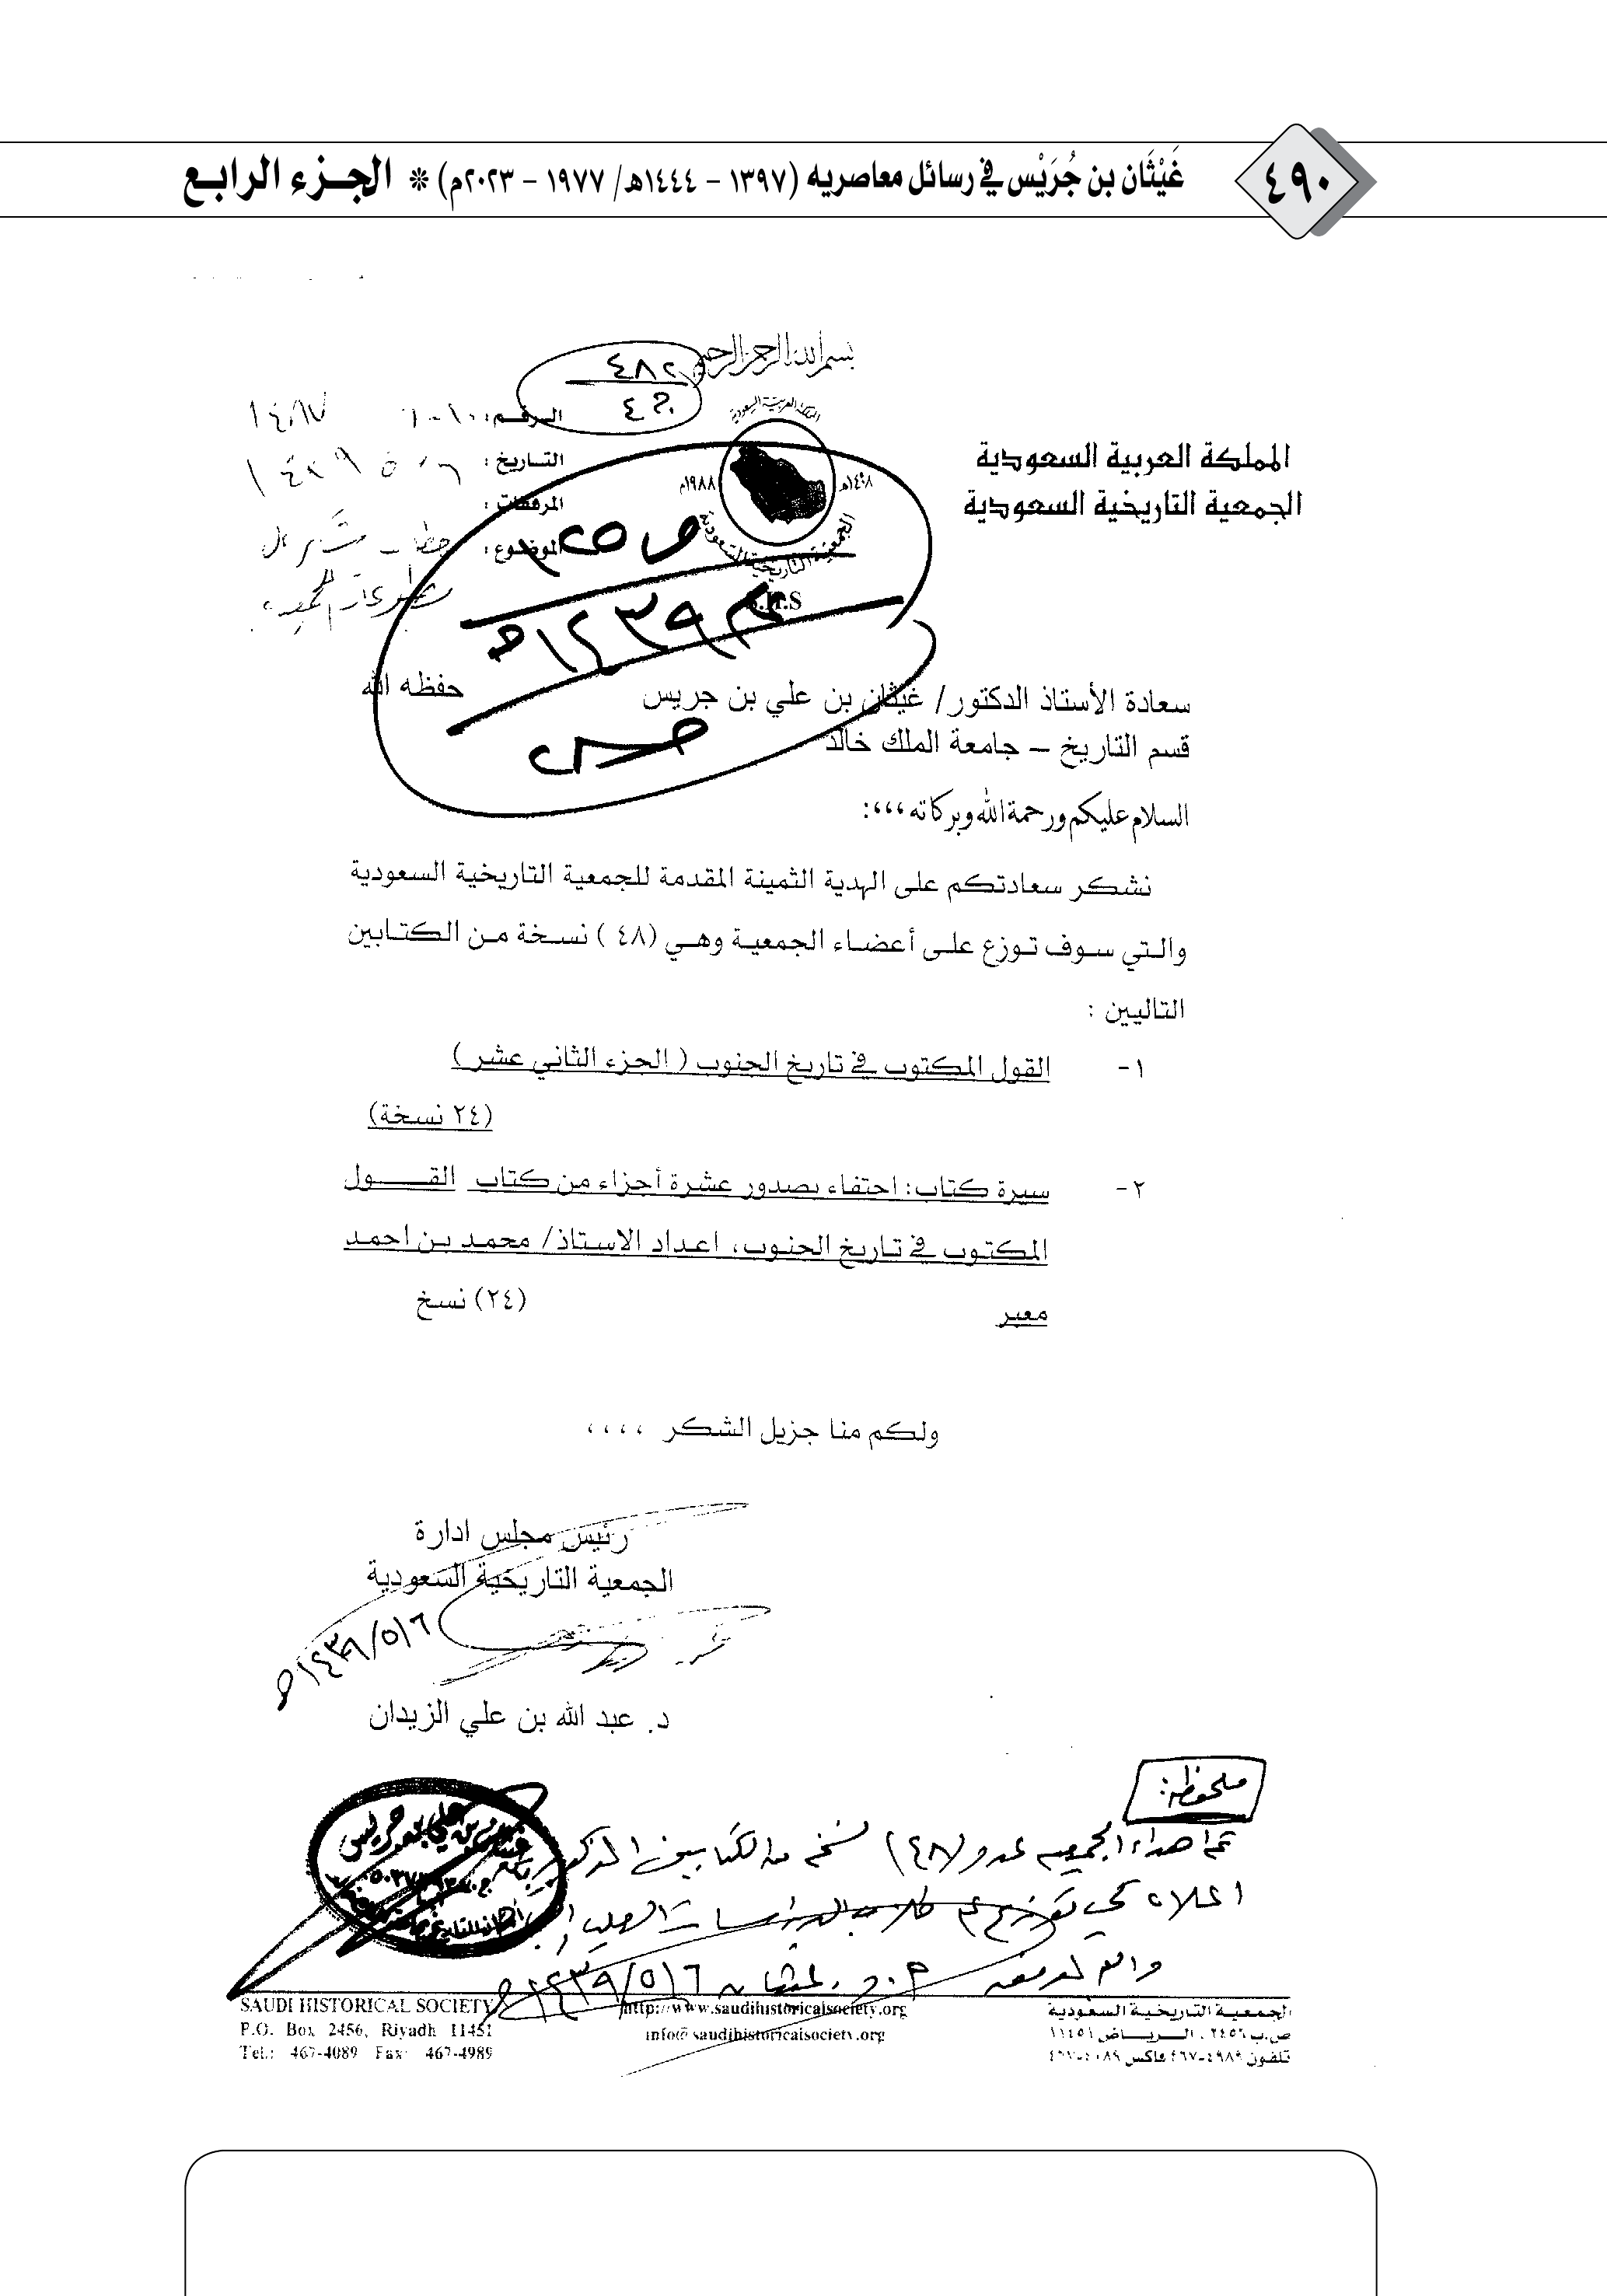 ٤٩٠
غَيْثَان بن جُرَيْس في رسائل معاصريه (١٣٩٧ - ١٤٤٤هـ/ ١٩٧٧ - ٢٠٢٣م) * الجزء الرابع
بسم الله الرحمن الرحيم
المملكة العربية السعودية
الجمعية التاريخية السعودية
المملكة العربية السعودية
١٤٠٨هـ
١٩٨٨م
الجمعية التاريخية السعودية
S.H.S
الرقم:
التاريخ:
المرفقات:
الموضوع:
سعادة الأستاذ الدكتور/ غيثان بن علي بن جريس حفظه الله
قسم التاريخ – جامعة الملك خالد
السلام عليكم ورحمة الله وبركاته ،،،:
نشكر سعادتكم على الهدية الثمينة المقدمة للجمعية التاريخية السعودية
والتي سوف توزع على أعضاء الجمعية وهي (٤٨ ) نسخة من الكتابين
التاليين :
١- القول المكتوب في تاريخ الجنوب ( الجزء الثاني عشر )
(٢٤ نسخة)
٢- سيرة كتاب: احتفاء بصدور عشرة أجزاء من كتاب القول
المكتوب في تاريخ الجنوب، اعداد الاستاذ/ محمد بن احمد
معبر (٢٤) نسخ
ولكم منا جزيل الشكر ،،،،
رئيس مجلس ادارة
الجمعية التاريخية السعودية
١٤٣٩/٥/٦هـ
د. عبد الله بن علي الزيدان
ملحوظة:
تم اهداء الجمعيه عدد (٤٨) نسخه من الكتابين المذكورين
اعلاه
١٤٣٩/٥/٦هـ
SAUDI HISTORICAL SOCIETY
P.O. Box 2456, Riyadh 11451
Tel.: 467-4089 Fax: 467-4989
http://www.saudihistoricalsociety.org
info@saudihistoricalsociety.org
الجمعية التاريخية السعودية
ص.ب ٢٤٥٦ ، الرياض ١١٤٥١
تلفون ٤٩٨٩-٤٦٧ فاكس ٤٠٨٩-٤٦٧